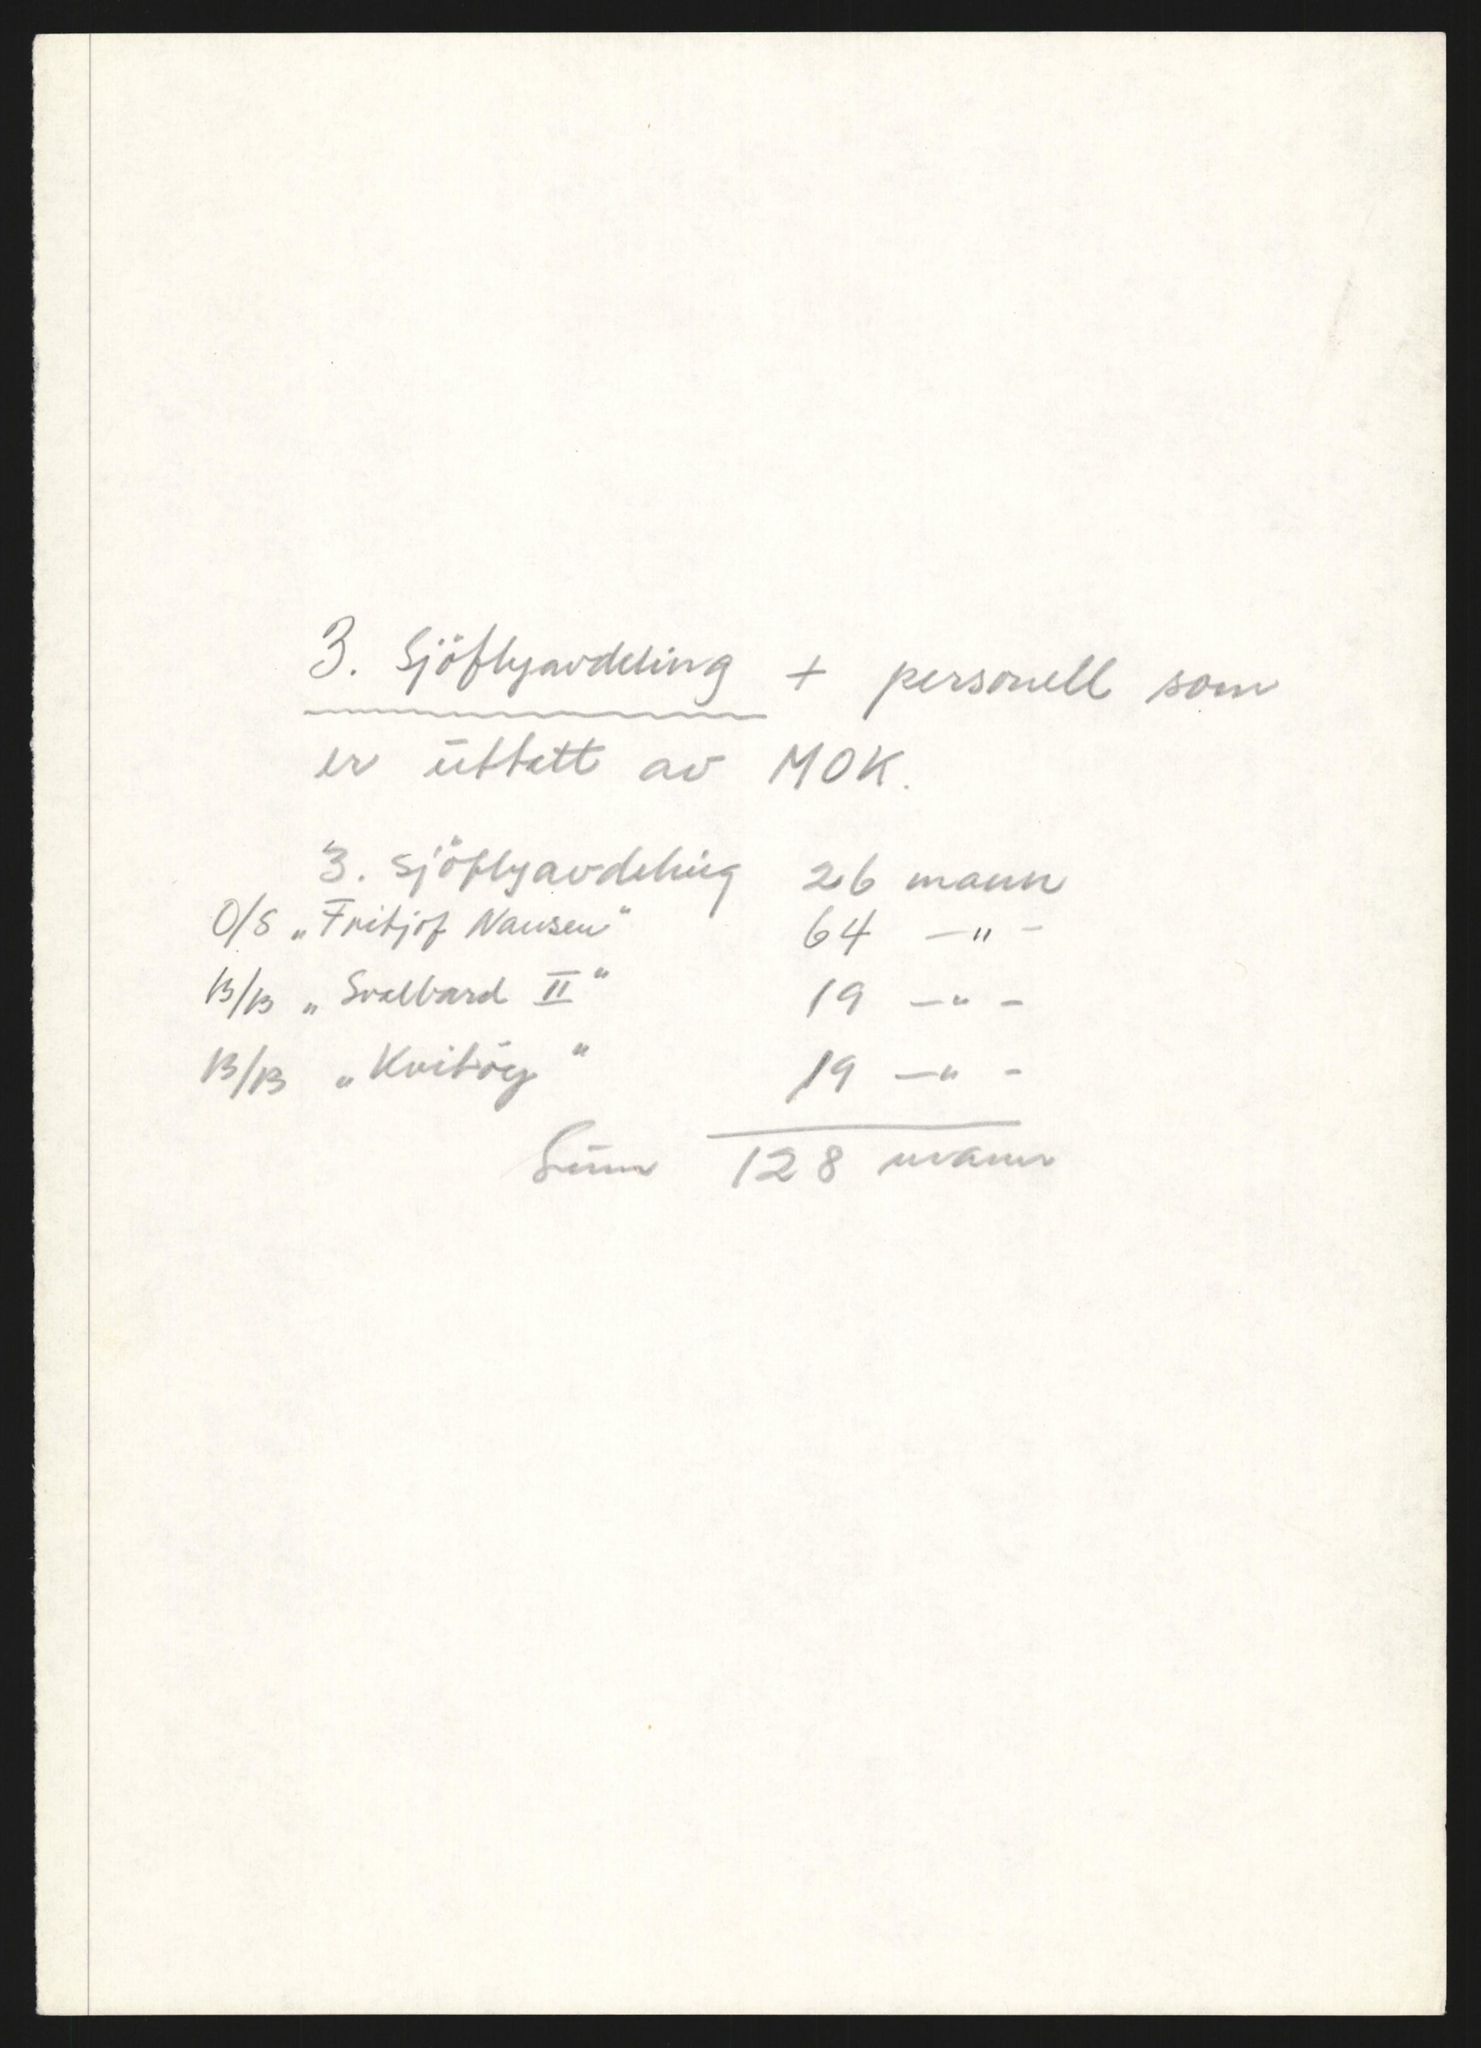 3. Sjöflyavdeling + personell som
er uttatt av MOK.
3. Sjöflyavdeling 26 mann
O/S „Fritjof Nansen" 64 —"-
B/B „Svalbard II" 19 —"-
B/B „Kvitöy" 19 —"-
Sum 128 mann